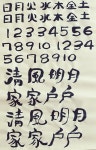 日月火水木金土
日月火水木金土
1234556
78910 1234
5678910
清風明月
家家戶戶
清風明月
家家戶戶